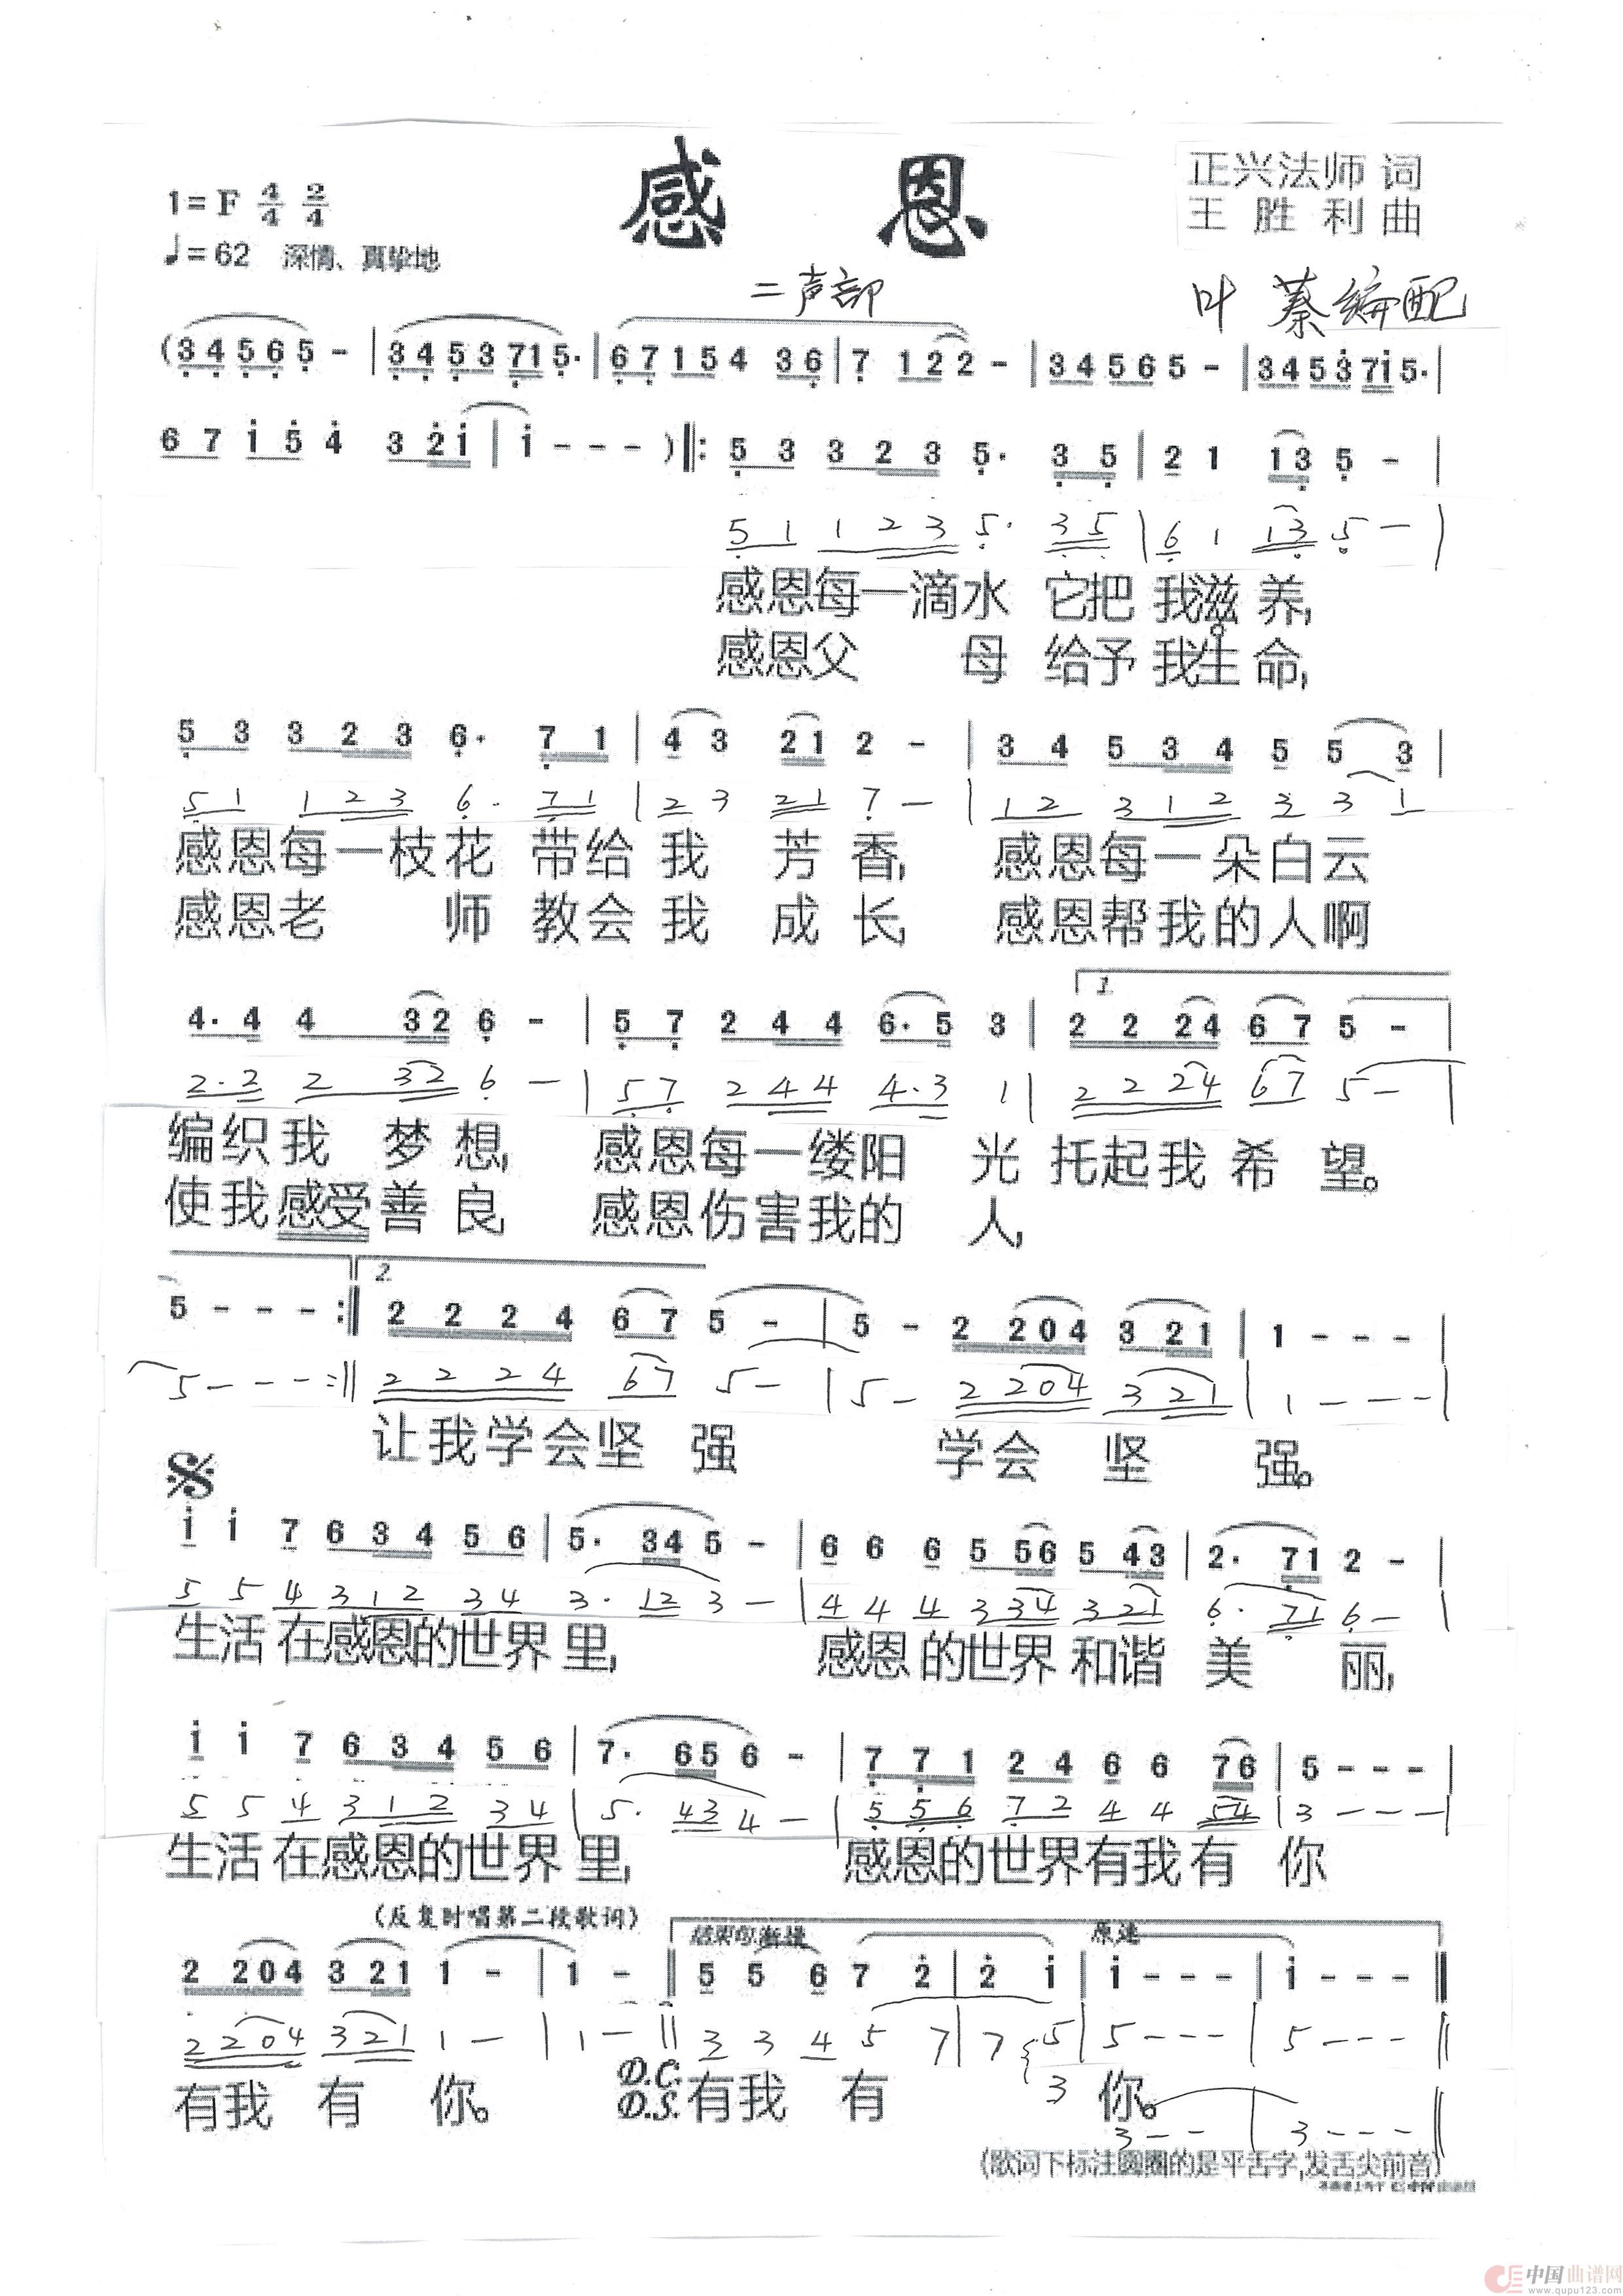 感 恩
正兴法师 词
王 胜 利 曲
1=F 4/4 2/4
♩=62 深情、真挚地
二声部
叶 蓁 编配
(3 4 5 6 5 - | 3 4 5 3 7 1 5. | 6 7 1 5 4 3 6 | 7 1 2 2 - | 3 4 5 6 5 - | 3 4 5 3 7 i 5. |
6 7 i 5 4 3 2 i | i - - - ) ‖: 5 3 3 2 3 5. 3 5 | 2 1 1 3 5 - |
5 1 1 2 3 5. 3 5 | 6 1 1 3 5 - |
感恩每一滴水 它把 我滋 养,
感恩父 母 给予 我生 命,
5 3 3 2 3 6. 7 1 | 4 3 2 1 2 - | 3 4 5 3 4 5 5 3 |
5 1 1 2 3 6. 7 1 | 2 3 2 1 7 - | 1 2 3 1 2 3 3 1
感恩每一枝花 带给 我 芳 香, 感恩每一朵白云
感恩老 师 教会 我 成 长, 感恩帮我的人啊
1.
4. 4 4 3 2 6 - | 5 7 2 4 4 6. 5 3 | 2 2 2 4 6 7 5 - |
2. 2 2 3 2 6 - | 5 7 2 4 4 4. 3 1 | 2 2 2 4 6 7 5 - |
编织我 梦 想, 感恩每一缕阳 光 托起我 希 望。
使我感受善 良, 感恩伤害我的 人,
2.
5 - - - :‖ 2 2 2 4 6 7 5 - | 5 - 2 2 0 4 3 2 1 | 1 - - - |
5 - - - :‖ 2 2 2 4 6 7 5 - | 5 - 2 2 0 4 3 2 1 | 1 - - - |
让我学会坚 强 学会 坚 强。
i i 7 6 3 4 5 6 | 5. 3 4 5 - | 6 6 6 5 5 6 5 4 3 | 2. 7 1 2 - |
5 5 4 3 1 2 3 4 3. 1 2 3 - | 4 4 4 3 3 4 3 2 1 6. 7 1 6 - |
生活在感恩的世界里, 感恩的世界和谐 美 丽,
i i 7 6 3 4 5 6 | 7. 6 5 6 - | 7 7 1 2 4 6 6 7 6 | 5 - - - |
5 5 4 3 1 2 3 4 | 5. 4 3 4 - | 5 5 6 7 2 4 4 5 4 | 3 - - - |
生活在感恩的世界里, 感恩的世界有我有 你
(反复时唱第二段歌词) 结束句渐慢 原速
2 2 0 4 3 2 1 1 - | 1 - ‖ 5 5 6 7 2 | 2 i | i - - - | i - - - ‖
2 2 0 4 3 2 1 1 - | 1 - ‖ 3 3 4 5 7 | 7 5 | 5 - - - | 5 - - - ‖
3
有我 有 你。 D.C. D.S. 有我 有 你。
3 - - | 3 - - - ‖
(歌词下标注圆圈的是平舌字,发舌尖前音)
中国曲谱网
www.qupu123.com